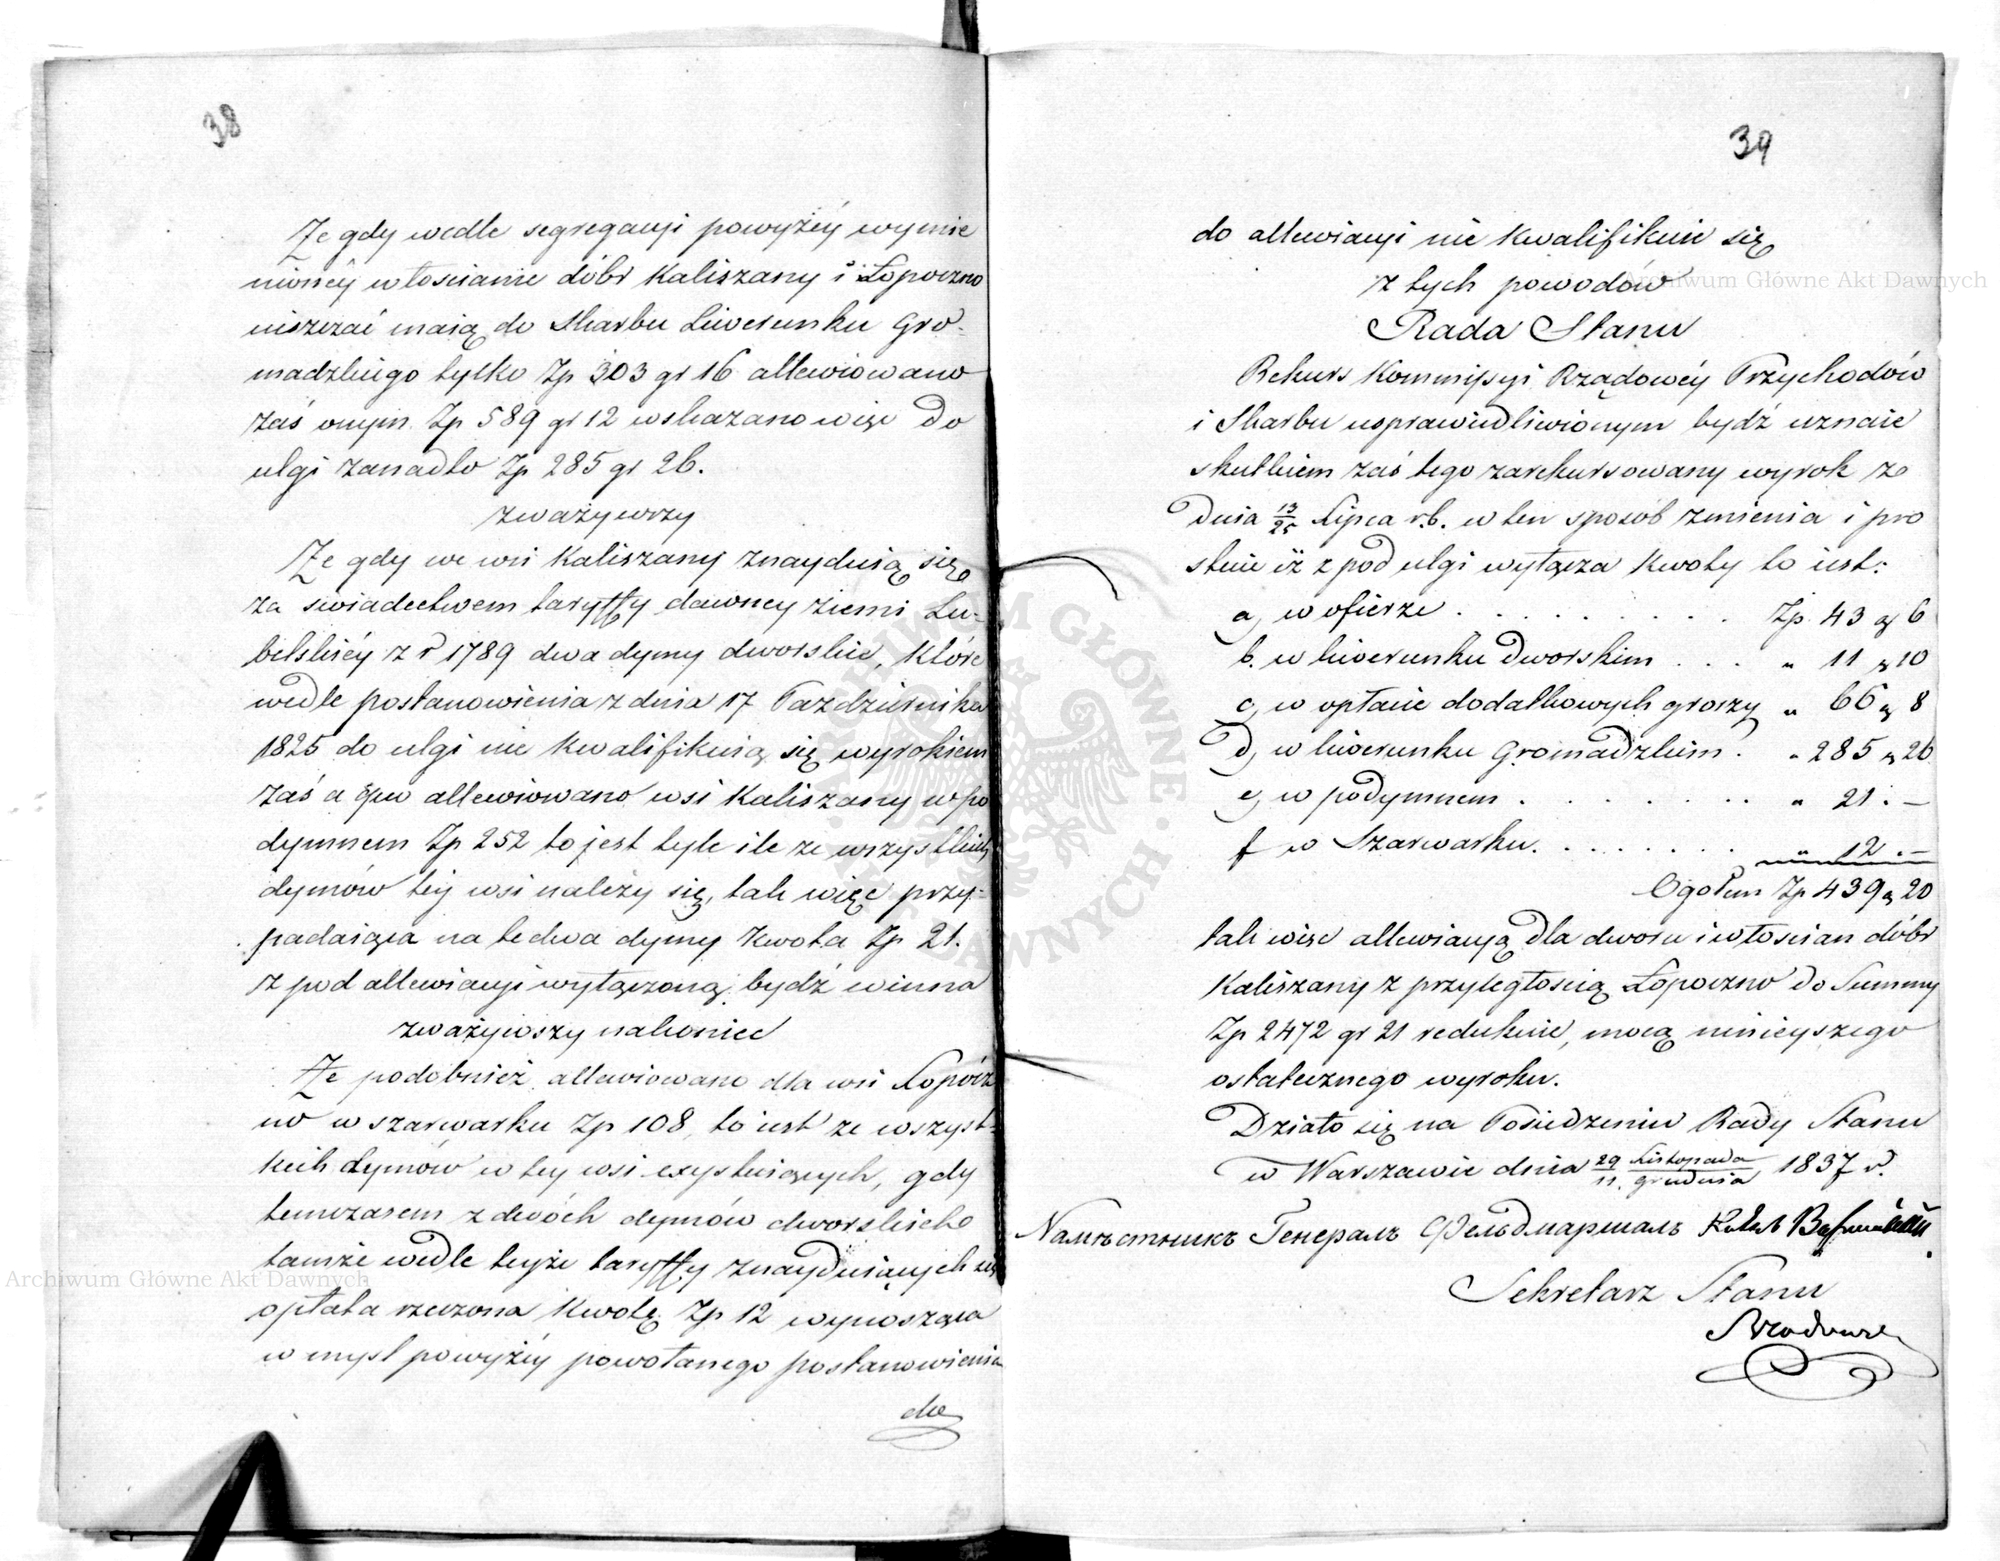 38
Że gdy wedle segregacyi powyżéy wymie
nionéy włościanie dóbr Kaliszany i Łopoczno
uiszczać maią do Skarbu Liwerunku Gro-
madzkiego tylko Zp 303 gr 16 allewiowano
zaś onym Zp 589 gr 12 wskazano więc do
ulgi zanadto Zp 285 gr 26.
zważywszy
Że gdy we wsi Kaliszany znayduią się
za swiadectwem taryffy dawney ziemi Lu-
belskiéy z r 1789 dwa dymy dworskie, które
wedle postanowienia z dnia 17 Pazdziernika
1825 do ulgi nie kwalifikuią się wyrokiem
zaś a quo allewiowano wsi Kaliszany w po
dymnem Zp 252 to jest tyle ile ze wszystkich
dymów téy wsi należy się, tak więc przy-
padaiąca na te dwa dymy kwota Zp 21.
z pod allewiacyi wyłączoną bydź winna
zważywszy nakoniec
Że podobnież allewiowano dla wsi Łopócz
no w szarwarku Zp 108, to iest ze wszyst-
kich dymów w tey wsi exystuiących, gdy
temczasem z dwóch dymów dworskich
tamże wedle teyże taryffy znayduiących się
opłata rzeczona kwotę Zp 12 wynosząca
w mysl powyżéy powołanego postanowienia
do
39
do allewiacyi nie kwalifikuie się
z tych powodów
Rada Stanu
Rekurs Kommissyi Rządowéy Przychodów
i Skarbu usprawiedliwionym bydź uznaie
skutkiem zaś tego zarekursowany wyrok z
dnia 13/25 Lipca r.b. w ten sposób zmienia i pro
stuie iż z pod ulgi wyłącza kwoty to iest:
a, w ofierze . . . . . . . . . Zp 43 g 6
b. w liwerunku dworskim . . . " 11 g 10
c, w opłacie dodatkowych groszy " 66 g 8
d, w liwerunku Gromadzkim . " 285 g 26
e, w podymnem . . . . . . . . " 21 . —
f w Szarwarku. . . . . . . . 12 . —
Ogółem Zp 439 g 20
tak więc allewiacyą dla dworu i włoscian dóbr
Kaliszany z przyległoscią Łopoczno do Summy
Zp 2472 gr 21 redukuie, mocą ninieyszego
ostatecznego wyroku.
Działo się na Posiedzeniu Rady Stanu
w Warszawie dnia 29 Listopada/11. grudnia 1837 r.
Намѣстникъ Генералъ Фельдмаршалъ
Sekretarz Stanu
Archiwum Główne Akt Dawnych
Archiwum Główne Akt Dawnych
ARCHIWUM GŁÓWNE AKT DAWNYCH